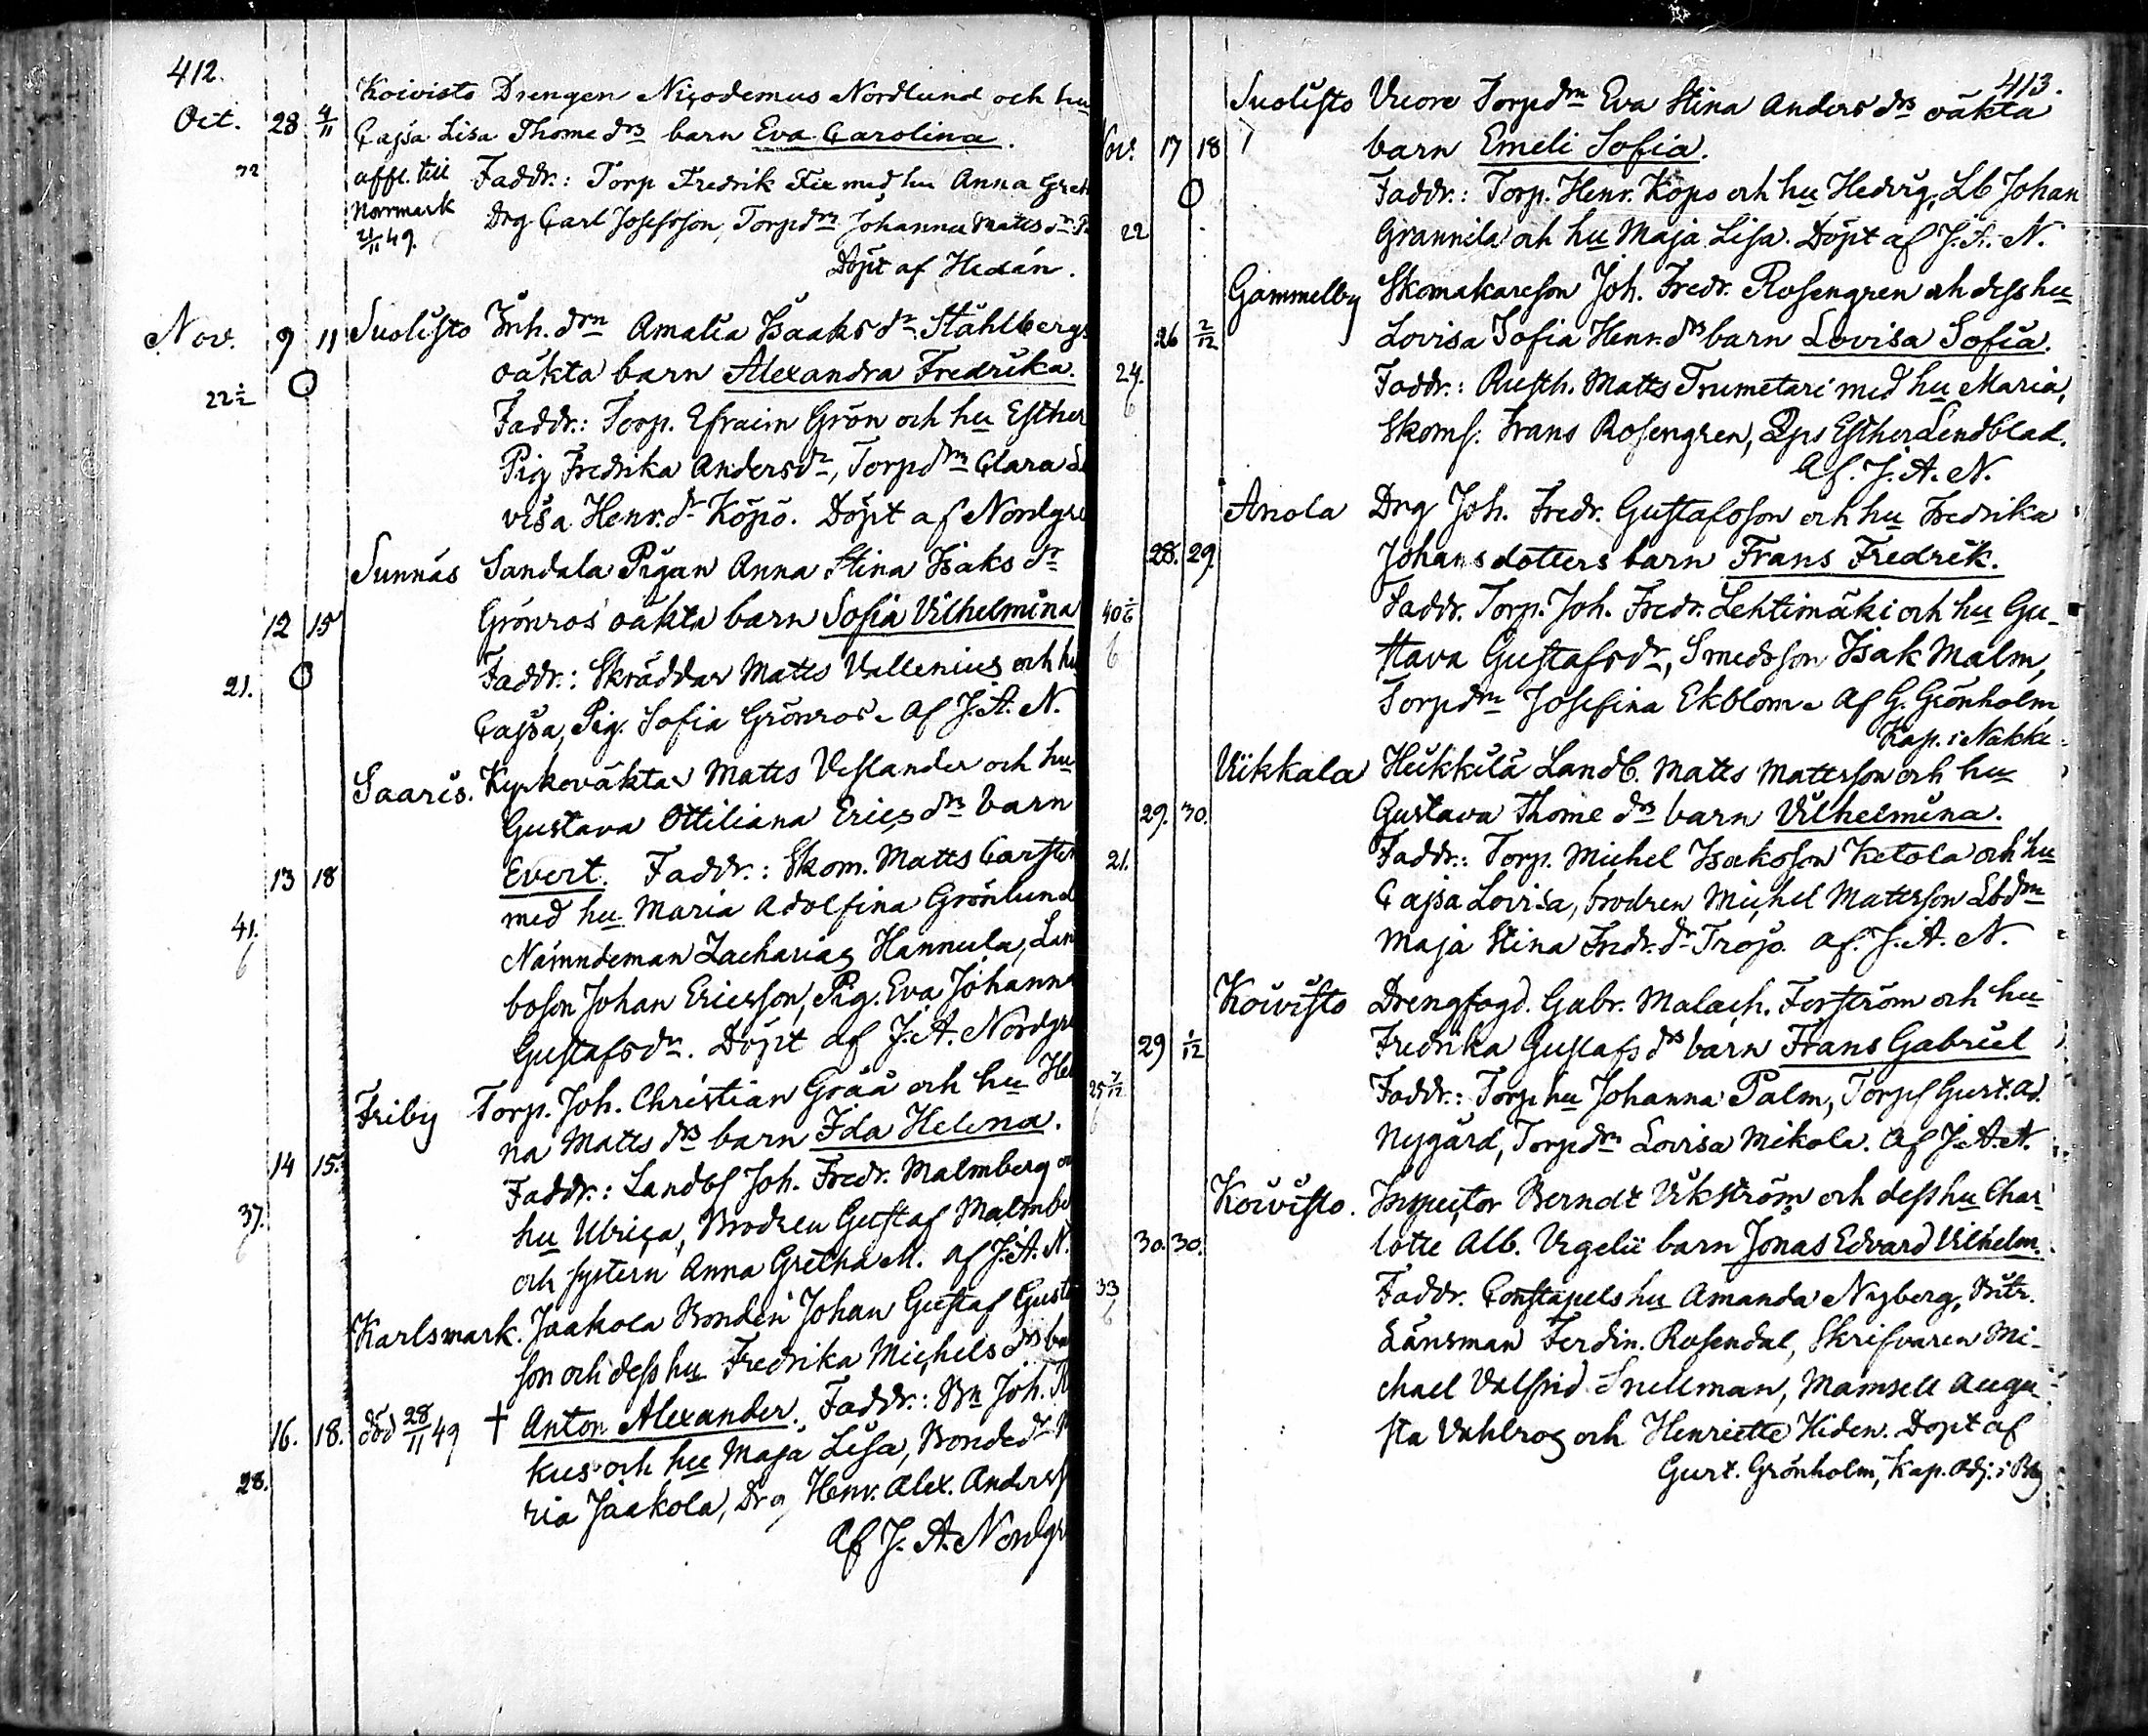 412.
Koivisto Drengen Nicodemus Nordlund och hu
Oct. 28 4/11 Cajsa Lisa Thome drs barn Eva Carolina.
32 affl. till Faddr.: Torp Fredrik Fix med hu Anna Greth
Norrmark Drg Carl Josefsson, Torpdrn Johanna Matts dr
21/11 49.
Döpt af Hedén.
Nov. 9 11 Suolisto Inh. drn Amalia Isaaks dr Ståhlbergs
22½ oäkta barn Alexandra Fredrika.
Faddr.: Torp. Efraim Grön och hu Esther
Pig Fredrika Anders dr, Torpdrn Clara Lo
visa Henr. dr Köpö. Döpt af Nordgre
Sunnäs Sandala Pigan Anna Stina Isaks dr
12 15 Grönros oäkta barn Sofia Vilhelmina
21. Faddr.: Skräddar Matts Vallenius och hu
Cajsa, Pig. Sofia Grönros. Af J. A. N.
Saaris. Kyrkoväktar Matts Veslander och hu
Gustava Ottiliana Erics drs barn
13 18 Evert. Faddr.: Skom. Matts Carsten
41. 6 med hu Maria Adolfina Grönlund
Nämndeman Zacharias Hannula, Lan
boson Johan Ericsson, Pig. Eva Johanna
Gustafsdr. Döpt af J. A. Nordgre
Friby Torp. Joh. Christian Grää och hu Hel
na Matts drs barn Ida Helena.
14 15. Faddr.: Landbs Joh. Fredr. Malmberg o
37. 6 hu Ulrica, Brodren Gustaf Malmbe
och system Anna Gretha M. af J. A. N.
Karlsmark. Jaakola Bonden Johan Gustaf Gusta
son och dess hu Fredrika Michels drs ba
16. 18. död 28/11 49 † Anton Alexander. Faddr.: Bn Joh.
28. kus och hu Maja Lisa, Bonded
ria Jaakola, Drg Henr. Alex. Anderss
Af J. A. Nordgr
413.
Suolisto Vuore Torpdrn Eva Stina Anders drs oäkta
Nov. 17 18 barn Emeli Sofia.
Faddr.: Torp. Henr. Köpö och hu Hedvig, Lb Johan
22 Grannila och hu Maja Lisa. Döpt af J. A. N.
Gammelby Skomakareson Joh. Fredr. Rosengren och dess hu
26 2/12 Lovisa Sofia Henr. drs barn Lovisa Sofia.
24. 6 Faddr.: Rusth. Matts Trumetari med hu Maria,
Skoms: Frans Rosengren, Pps Esther Lendblad.
Af. J. A. N.
Anola Drg Joh. Fredr. Gustafsson och hu Fredrika
28. 29. Johans dotters barn Frans Fredrik.
40 6 Faddr. Torp. Joh. Fredr. Lehtimäki och hu Gu-
6 stava Gustafsdr, Smedsson Isak Malm,
Torpdrn Josefina Ekblom. Af G. Grönholm
Kap. i Nakki
Viikkala Heikkilä Landb. Matts Mattsson och hu
29. 30. Gustava Thome drs barn Vilhelmina.
21. Faddr.: Torp. Michel Isaksson Ketola och hu
Cajsa Lovisa, brodren Michel Mattsson Lbdrn
Maja Stina Fredr. dr Tröjö. af. J. A. N.
Koivisto Drengfogd. Gabr. Malach. Forström och hu
29 1/12 Fredrika Gustafs drs barn Frans Gabriel
25 Faddr.: Torp hu Johanna Palm, Torps Gust. Ad.
Nygård, Torpdrn Lovisa Mikola. Af J. A. N.
Koivisto. Inspector Berndt Vikström och dess hu Char
30. 30. lotte Alb. Vegelii barn Jonas Edvard Vilhelm.
33 6 Faddr. Constapels hu Amanda Nyberg, Bitr.
Länsman Ferdin. Rosendal, Skrifvaren Mi-
chael Valfrid Snellman, Mamsell Augu
sta Vahlroos och Henriette Hiden. Döpt af
Gust. Grönholm, Kap. Adj. i